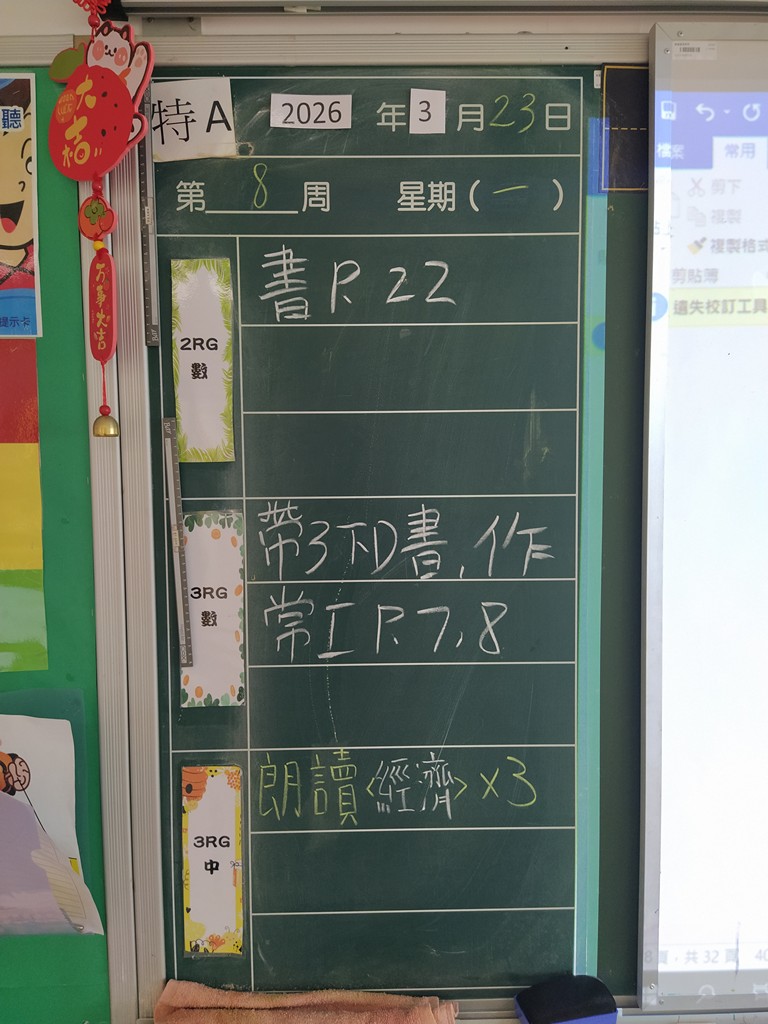 聽
提示卡
大吉
万事大吉
特A
2026 年 3 月 23 日
第 8 周 星期（一）
2RG
數
書 P. 22
3RG
數
帶3下D書,作
常工 P. 7,8
3RG
中
朗讀<經濟>x3
檔案
常用
剪下
複製
複製格式
剪貼簿
遺失校訂工具
頁，共 32 頁